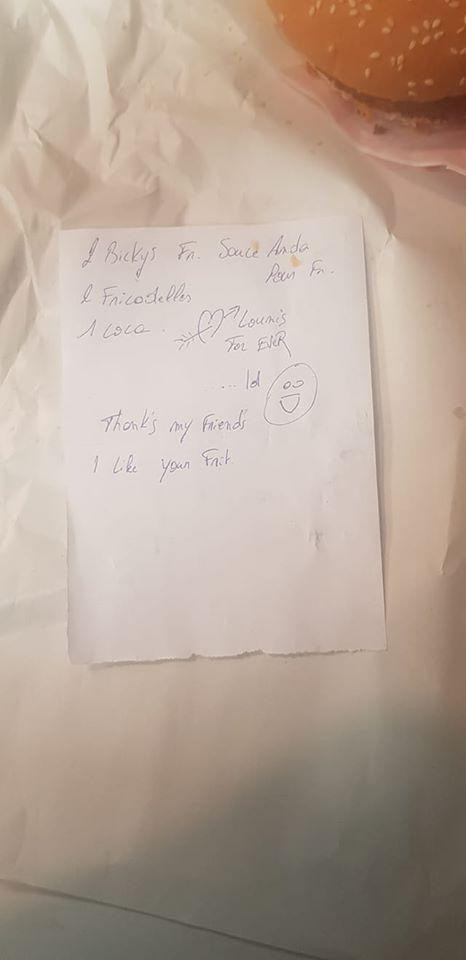 2 Bickys Fr. Sauce Anda
Pour Fr.
2 Fricadelles
1 coca.
Loumis
For EVER
..... lol
Thank's my Friends
I Like your Frit.